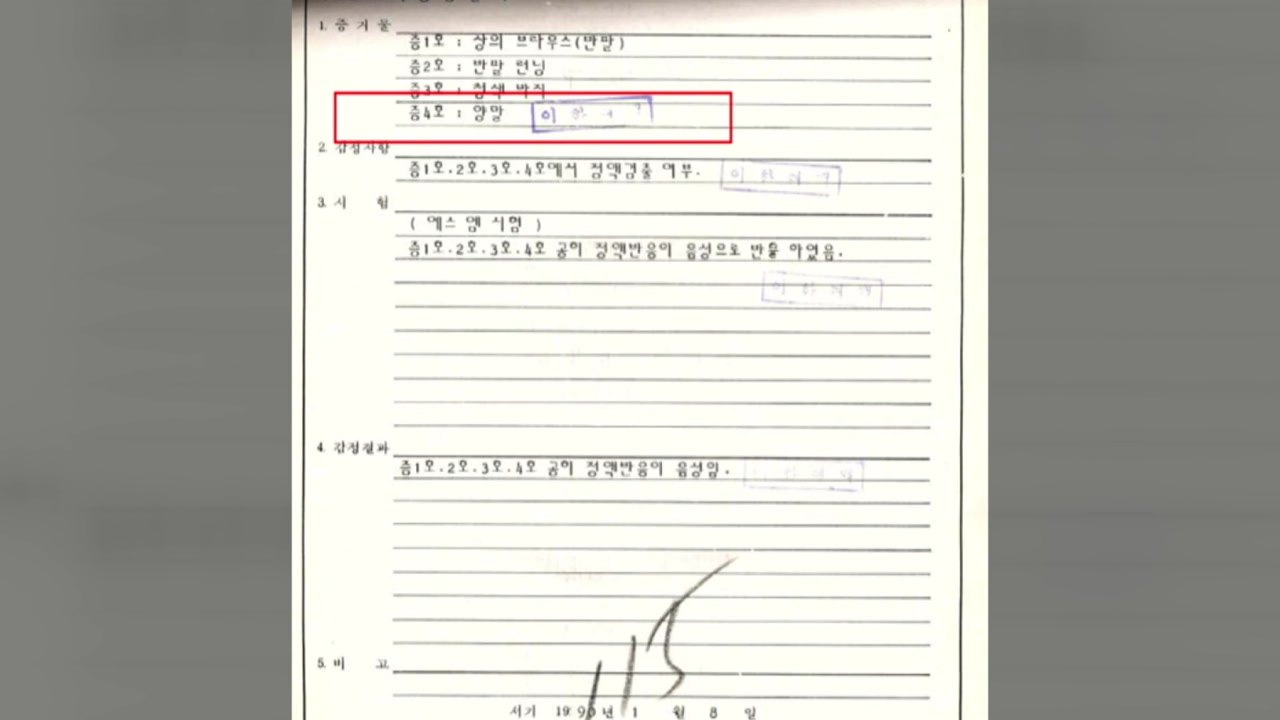 1. 증거물
증1호 : 상의 브라우스(반팔)
증2호 : 반팔 런닝
증3호 : 청색 바지
증4호 : 양말
2. 감정사항
증1호.2호.3호.4호에서 정액검출 여부.
3. 시 험
( 에스 엠 시험 )
증1호.2호.3호.4호 공히 정액반응이 음성으로 반출 하였음.
4. 감정결과
증1호.2호.3호.4호 공히 정액반응이 음성임.
5. 비 고
서기 1990년 1 월 8 일